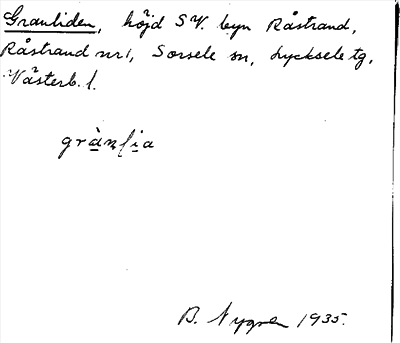 Granliden, höjd SV. byn Råstrand,
Råstrand nr 1, Sorsele sn, Lycksele tg,
Västerb. l.
grànlia
B. Nygren 1935.